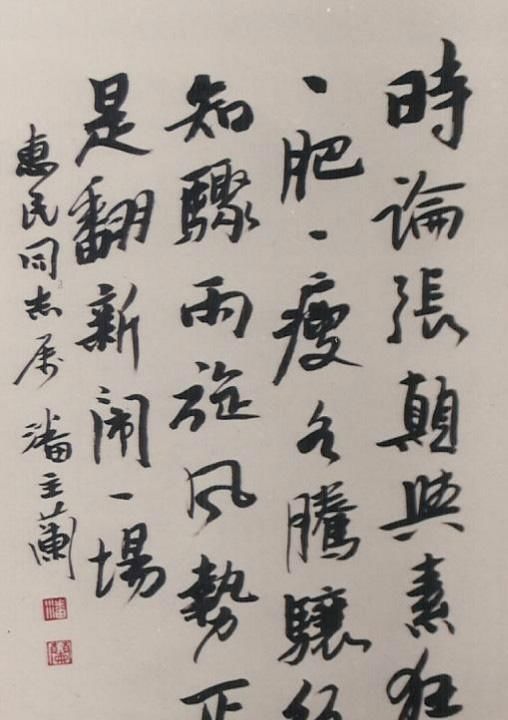 時論張顛與素狂
一肥一瘦各騰驤
知驟雨旋風勢正
是翻新闹一場
惠民同志属 潘主蘭
潘